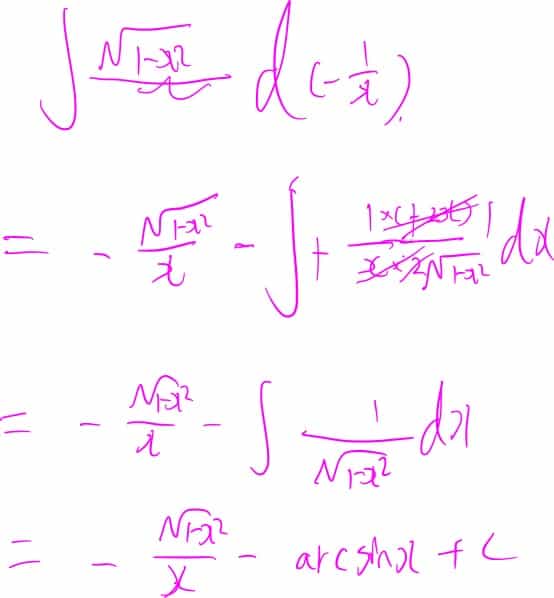 ∫ √(1-x²) d(-1/x)
= - √(1-x²)/x - ∫ + 1/√(1-x²) dx
= - √(1-x²)/x - ∫ 1/√(1-x²) dx
= - √(1-x²)/x - arcsinx + C